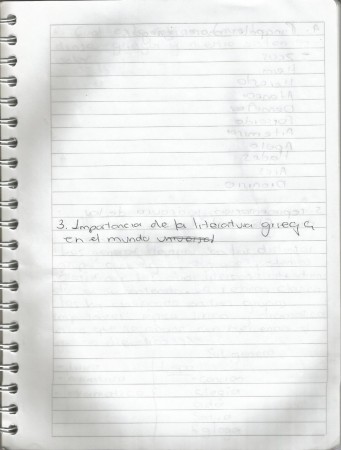 3. Importancia de la literatura griega
en el mundo universal